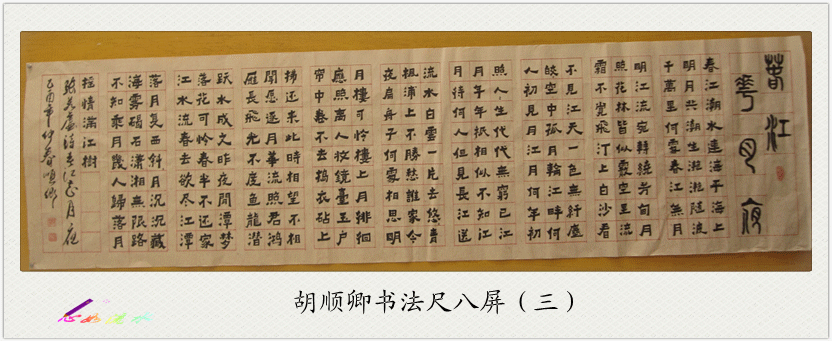 春江花月夜
春江潮水連海平海上
明月共潮生滟滟隨波
千萬里何處春江無月
明江流宛轉繞芳甸月
照花林皆似霰空里流
霜不覺飛汀上白沙看
不見江天一色無纤塵
皎空中孤月輪江畔何
人初見月江月何年初
照人生代代無窮已江
月年年祇相似不知江
月待何人但見長江送
流水白雲一片去悠青
楓浦上不勝愁誰家今
夜扁舟子何處相思明
月樓可憐樓上月徘徊
應照离人妝鏡臺玉户
帘中卷不去搗衣砧上
拂还来此時相望不相
聞愿逐月華流照君鴻
雁長飛光不度魚龍潜
跃水成文昨夜閒潭梦
落花可怜春半不还家
江水流春去欲尽江潭
落月复西斜月沉沉藏
海雾碣石潇湘無限路
不知乘月幾人歸落月
摇情滿江樹
張若虚诗春江花月夜
乙酉年仲春顺卿
胡顺卿书法尺八屏（三）